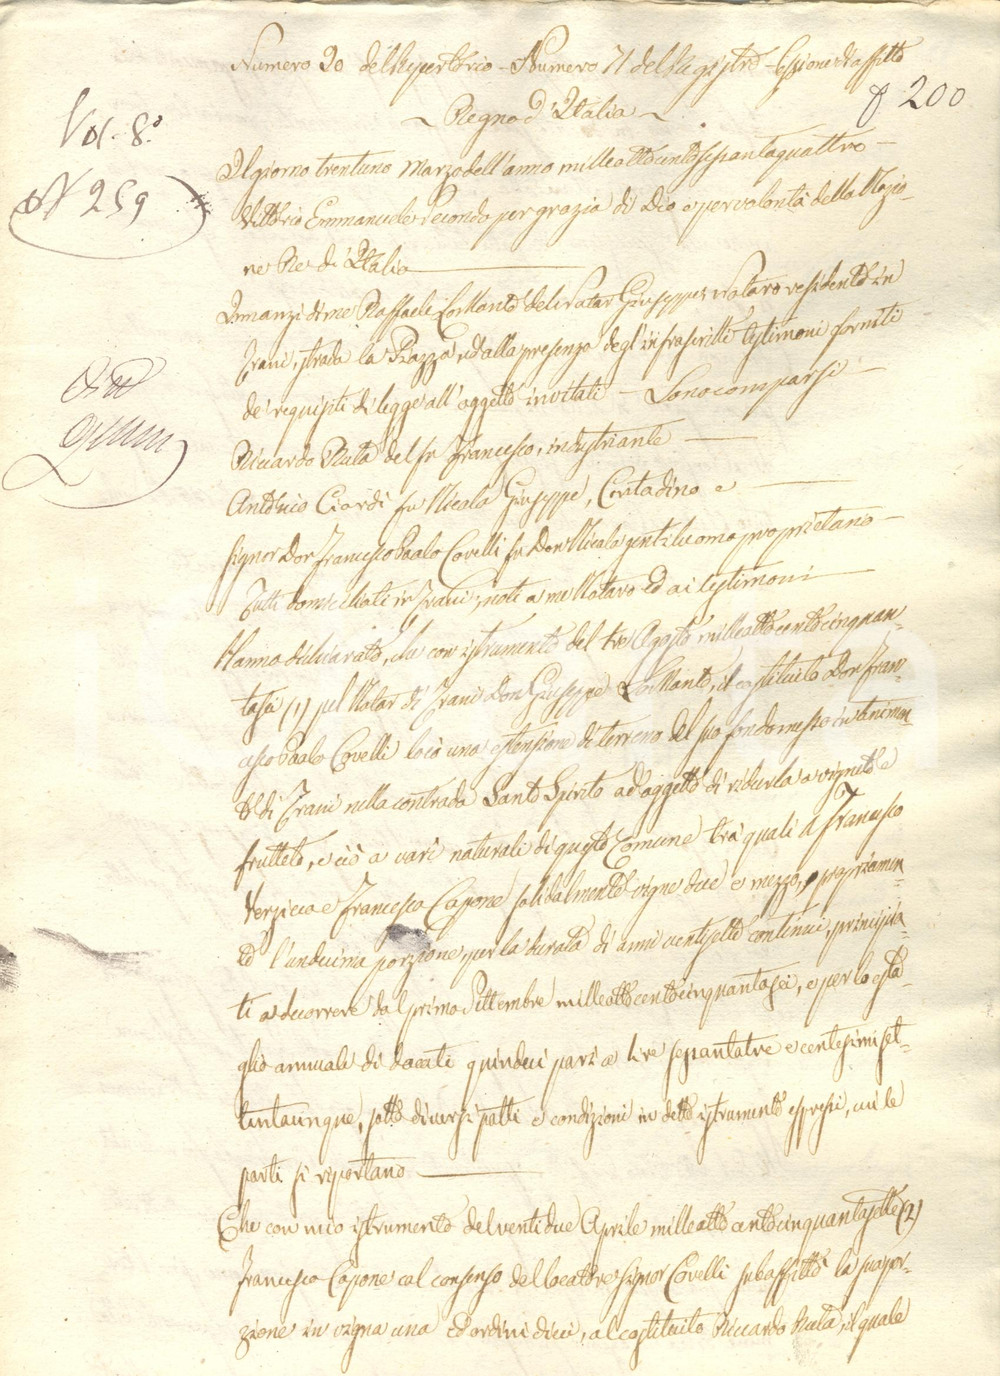 Numero 20 del Repertorio - Numero 71 del Registro - Cessione di affitto
f 200
~ Regno d'Italia ~
Vol. 8°
N 259
Il giorno trentuno Marzo dell'anno milleottocentosessantaquattro -
Vittorio Emmanuele Secondo per grazia di Dio e per volontà della Nazio-
ne Re di Italia
Innanzi di me Raffaele Lomanto del Notar Giuseppe, Notaro residente in
Trani, strada la Piazza, ed alla presenza degl'infrascritti testimoni forniti
de' requisiti di legge all'oggetto invitati - Sono comparsi -
Riccardo Rutà del fu Francesco, industriante
Antonio Ciardi fu Nicola Giuseppe, Contadino e
Signor Don Francesco Paolo Covelli fu Don Nicola gentiluomo proprietario -
Tutti domiciliati in Trani, noti a me Notaro ed ai testimoni
Hanno dichiarato, che con istrumento del tre Agosto milleottocentocinquan-
tasei (1) pel Notar di Trani Don Giuseppe Lomanto, il costituito Don Fran-
cesco Paolo Covelli locò una estensione di terreno del suo fondo messo in tenimen-
to di Trani nella contrada Santo Spirito ad oggetto di ridurla a vigneto e
frutteto, e ciò a varî naturali di questo Comune tra' quali a Francesco
Verzicco e Francesco Capone solidalmente vigne due e mezzo, propriamen-
te l'undecima porzione per la durata di anni ventisette continui, principia-
ti a decorrere dal primo Settembre milleottocentocinquantasei, e per lo esta-
glio annuale di docati quindici pari a lire sessantatre e centesimi set-
tantacinque, sotto diversi patti e condizioni in detto istrumento espressi, cui le
parti si riportano
Che con mio istrumento del ventidue Aprile milleottocentocinquantasette (2)
Francesco Capone col consenso del locatore Signor Covelli subaffittò la sua por-
zione in vigna una ed ordini dieci, al costituito Riccardo Rutà, il quale